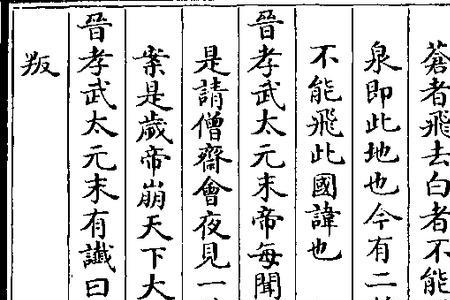 蒼者飛去白者不能
泉即此地也今有二
不能飛此國諱也
晉孝武太元末帝每聞
是請僧齋會夜見一
案是歲帝崩天下大
晉孝武太元末有讖曰
叛